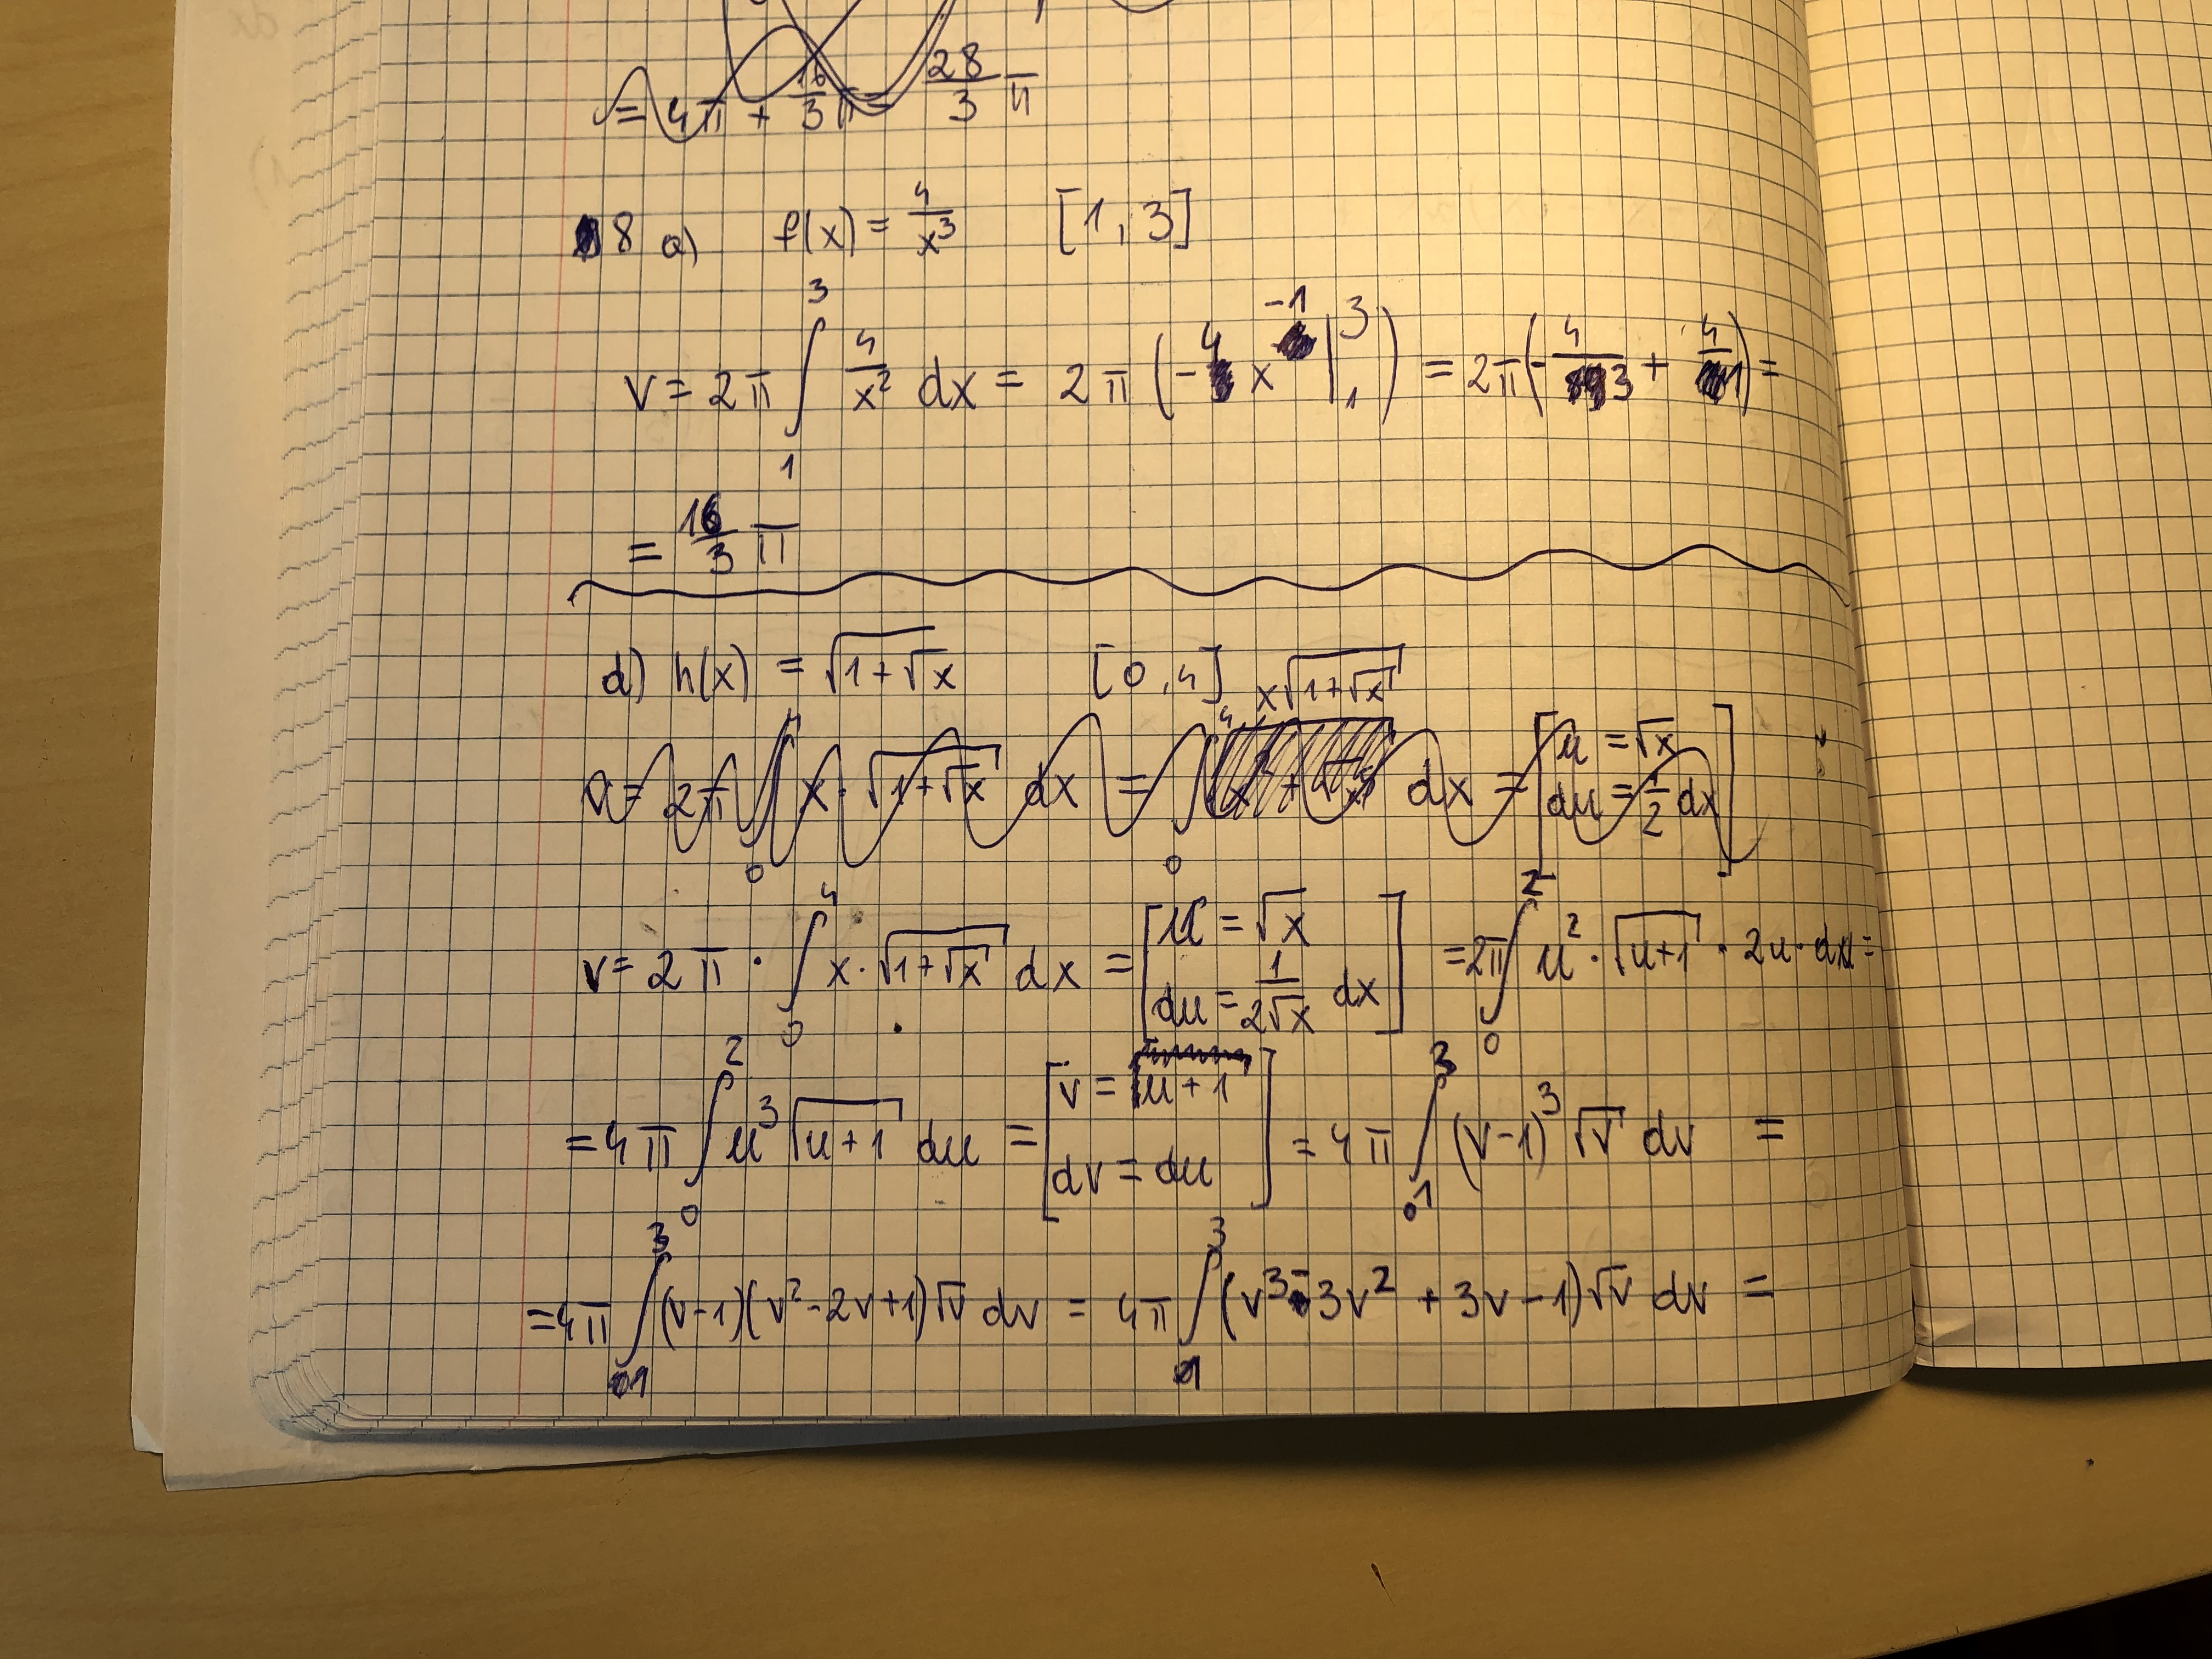 V = 4π + 16/3 π = 28/3 π
8 a) f(x) = 4/x³ [1, 3]
V = 2π ∫₁³ 4/x² dx = 2π (-4x⁻¹ |₁³) = 2π(-4/3 + 4/1) =
= 16/3 π
d) h(x) = √(1+√x) [0, 4]
x√(1+√x)
V = 2π ∫₀⁴ x·√(1+√x) dx = ∫₀⁴ dx = [u = √x
du = 1/2 dx]
V = 2π · ∫₀⁴ x·√(1+√x) dx = [u = √x
du = 1/(2√x) dx] = 2π ∫₀² u² · √(u+1) · 2u · du =
= 4π ∫₀² u³ √(u+1) du = [v = u+1
dv = du] = 4π ∫₁³ (v-1)³ √v dv =
= 4π ∫₁³ (v-1)(v²-2v+1)√v dv = 4π ∫₁³ (v³-3v²+3v-1)√v dv =